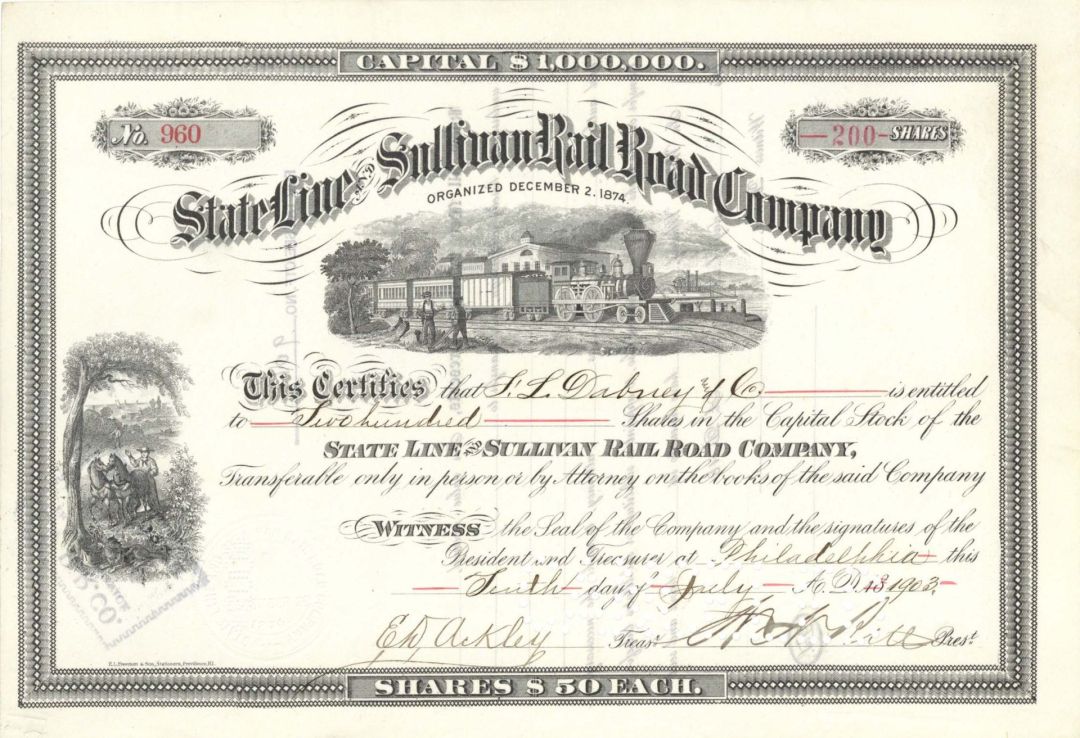 CAPITAL $1,000,000.
No. 960
—200— SHARES
State Line AND Sullivan Rail Road Company
ORGANIZED DECEMBER 2. 1874.
This Certifies that S. L. Dabney & Co is entitled
to Two hundred Shares in the Capital Stock of the
STATE LINE AND SULLIVAN RAIL ROAD COMPANY,
Transferable only in person or by Attorney on the books of the said Company
WITNESS the Seal of the Company and the signatures of the
President and Treasurer at Philadelphia this
Tenth day of July A.D. 18 1903
E D Ackley Treasr. Prest.
E.L. Freeman & Son, Stationers, Providence, R.I.
SHARES $50 EACH.